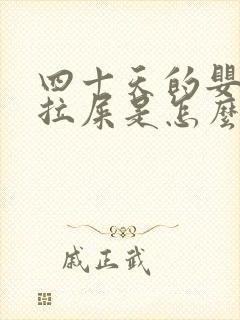 四十天的婴
拉屎是怎麽
戚正武